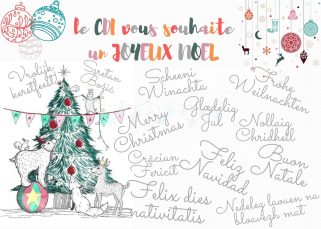 Le CDI vous souhaite
un JOYEUX NOEL
Vrolijk
kerstfeest!
Sretan
Božić
Scheeni
Winachta
Fröhe
Weihnachten
Merry
Christmas
Glædelig
Jul
Nollaig
Chridheil
Crăciun
Fericit
Feliz
Navidad
Buon
Natale
Felix dies
nativitatis
Nedeleg laouen na
bloavezh mat